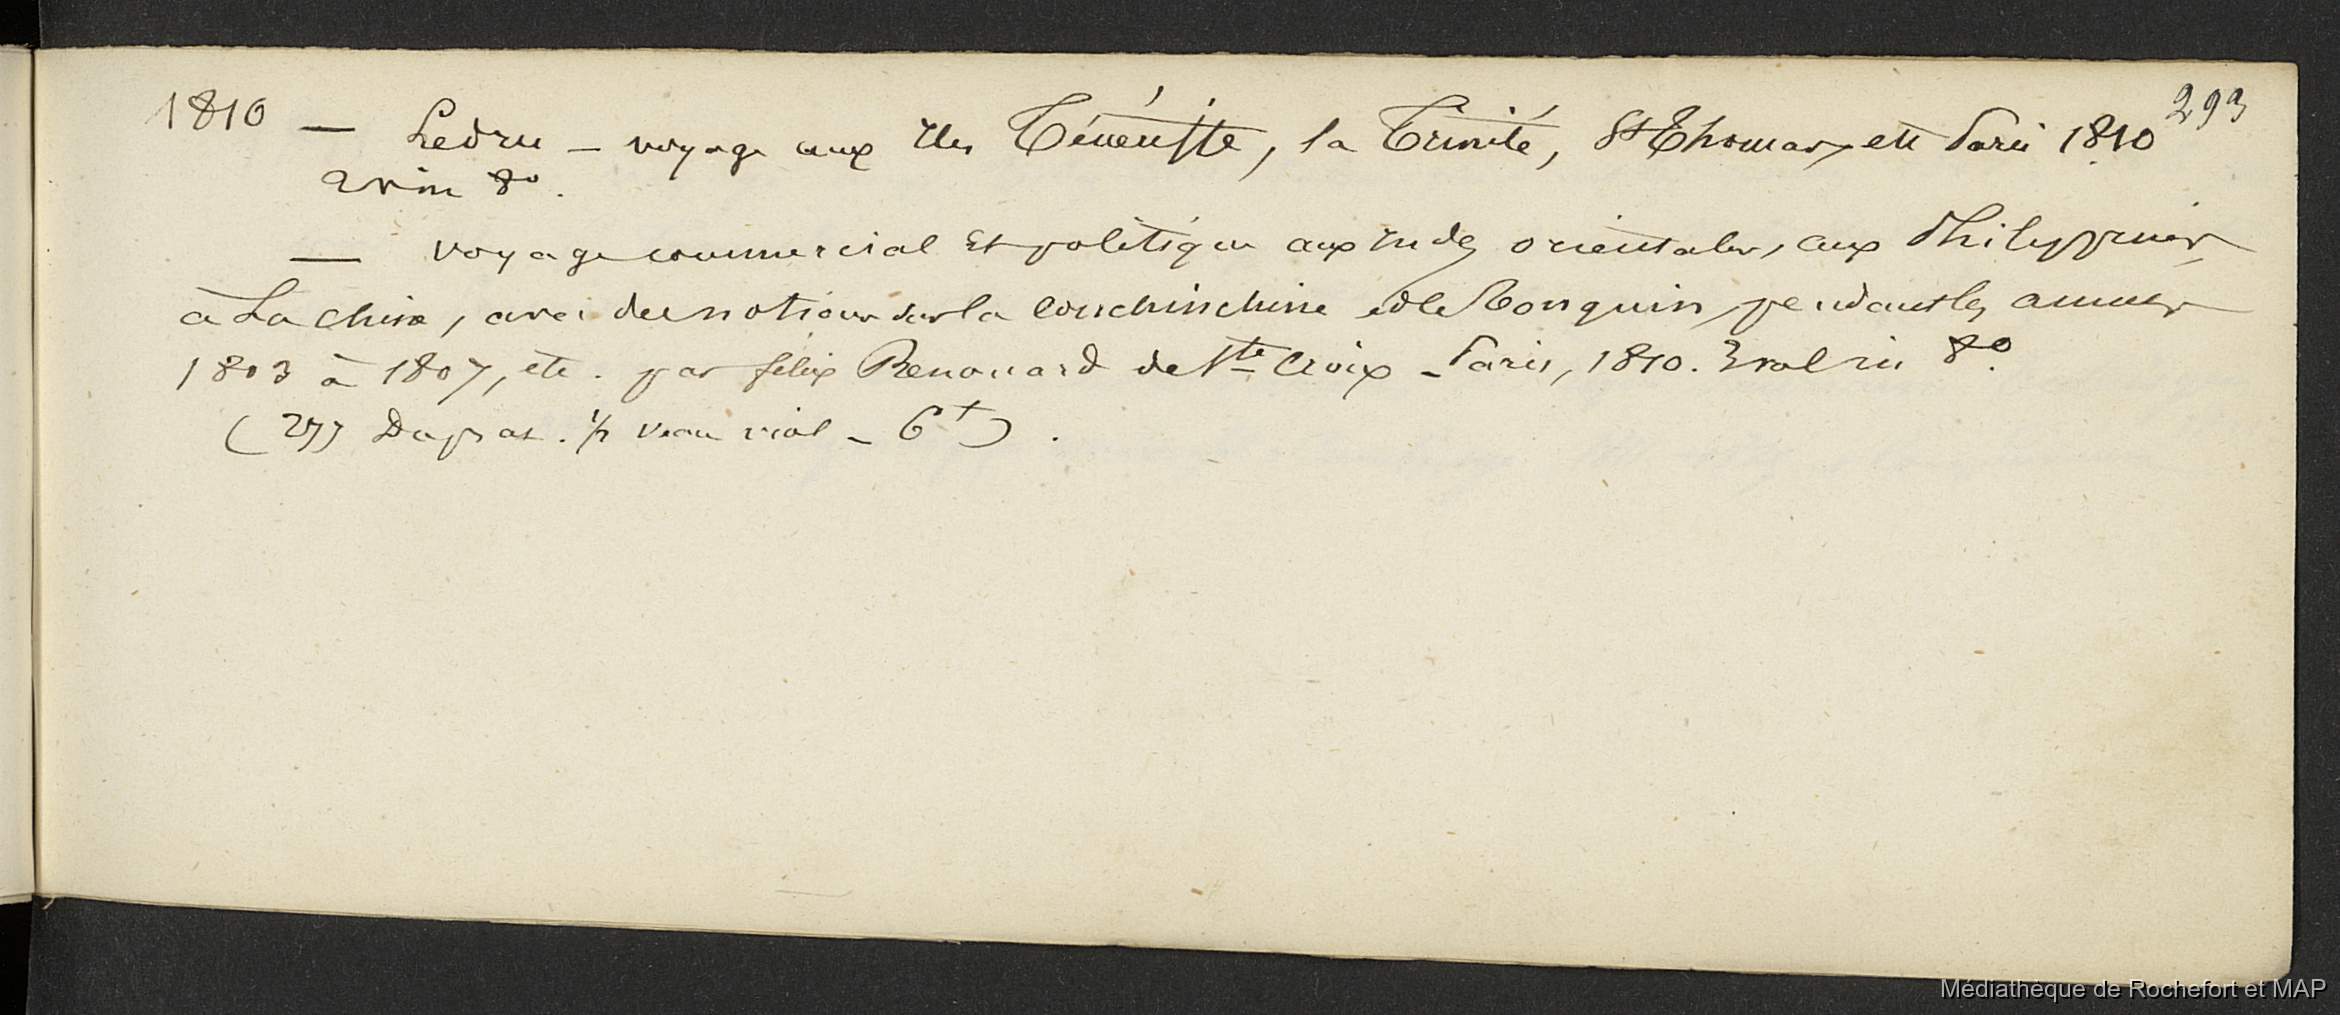 293
1810 — Ledru — voyage aux Iles Téneriffe, la Trinité, St Thomas, etc Paris 1810
2 v in 8°.
— voyage commercial et politique aux Indes orientales, aux Philippines,
à La Chine, avec des notions sur la Couchinchine et le Tonquin, pendant les années
1803 à 1807, etc. par félix Renouard de Ste Croix - Paris, 1810. 3 vol in 8°.
( Duprat . ½ veau viol - 6 ) .
Médiathèque de Rochefort et MAP